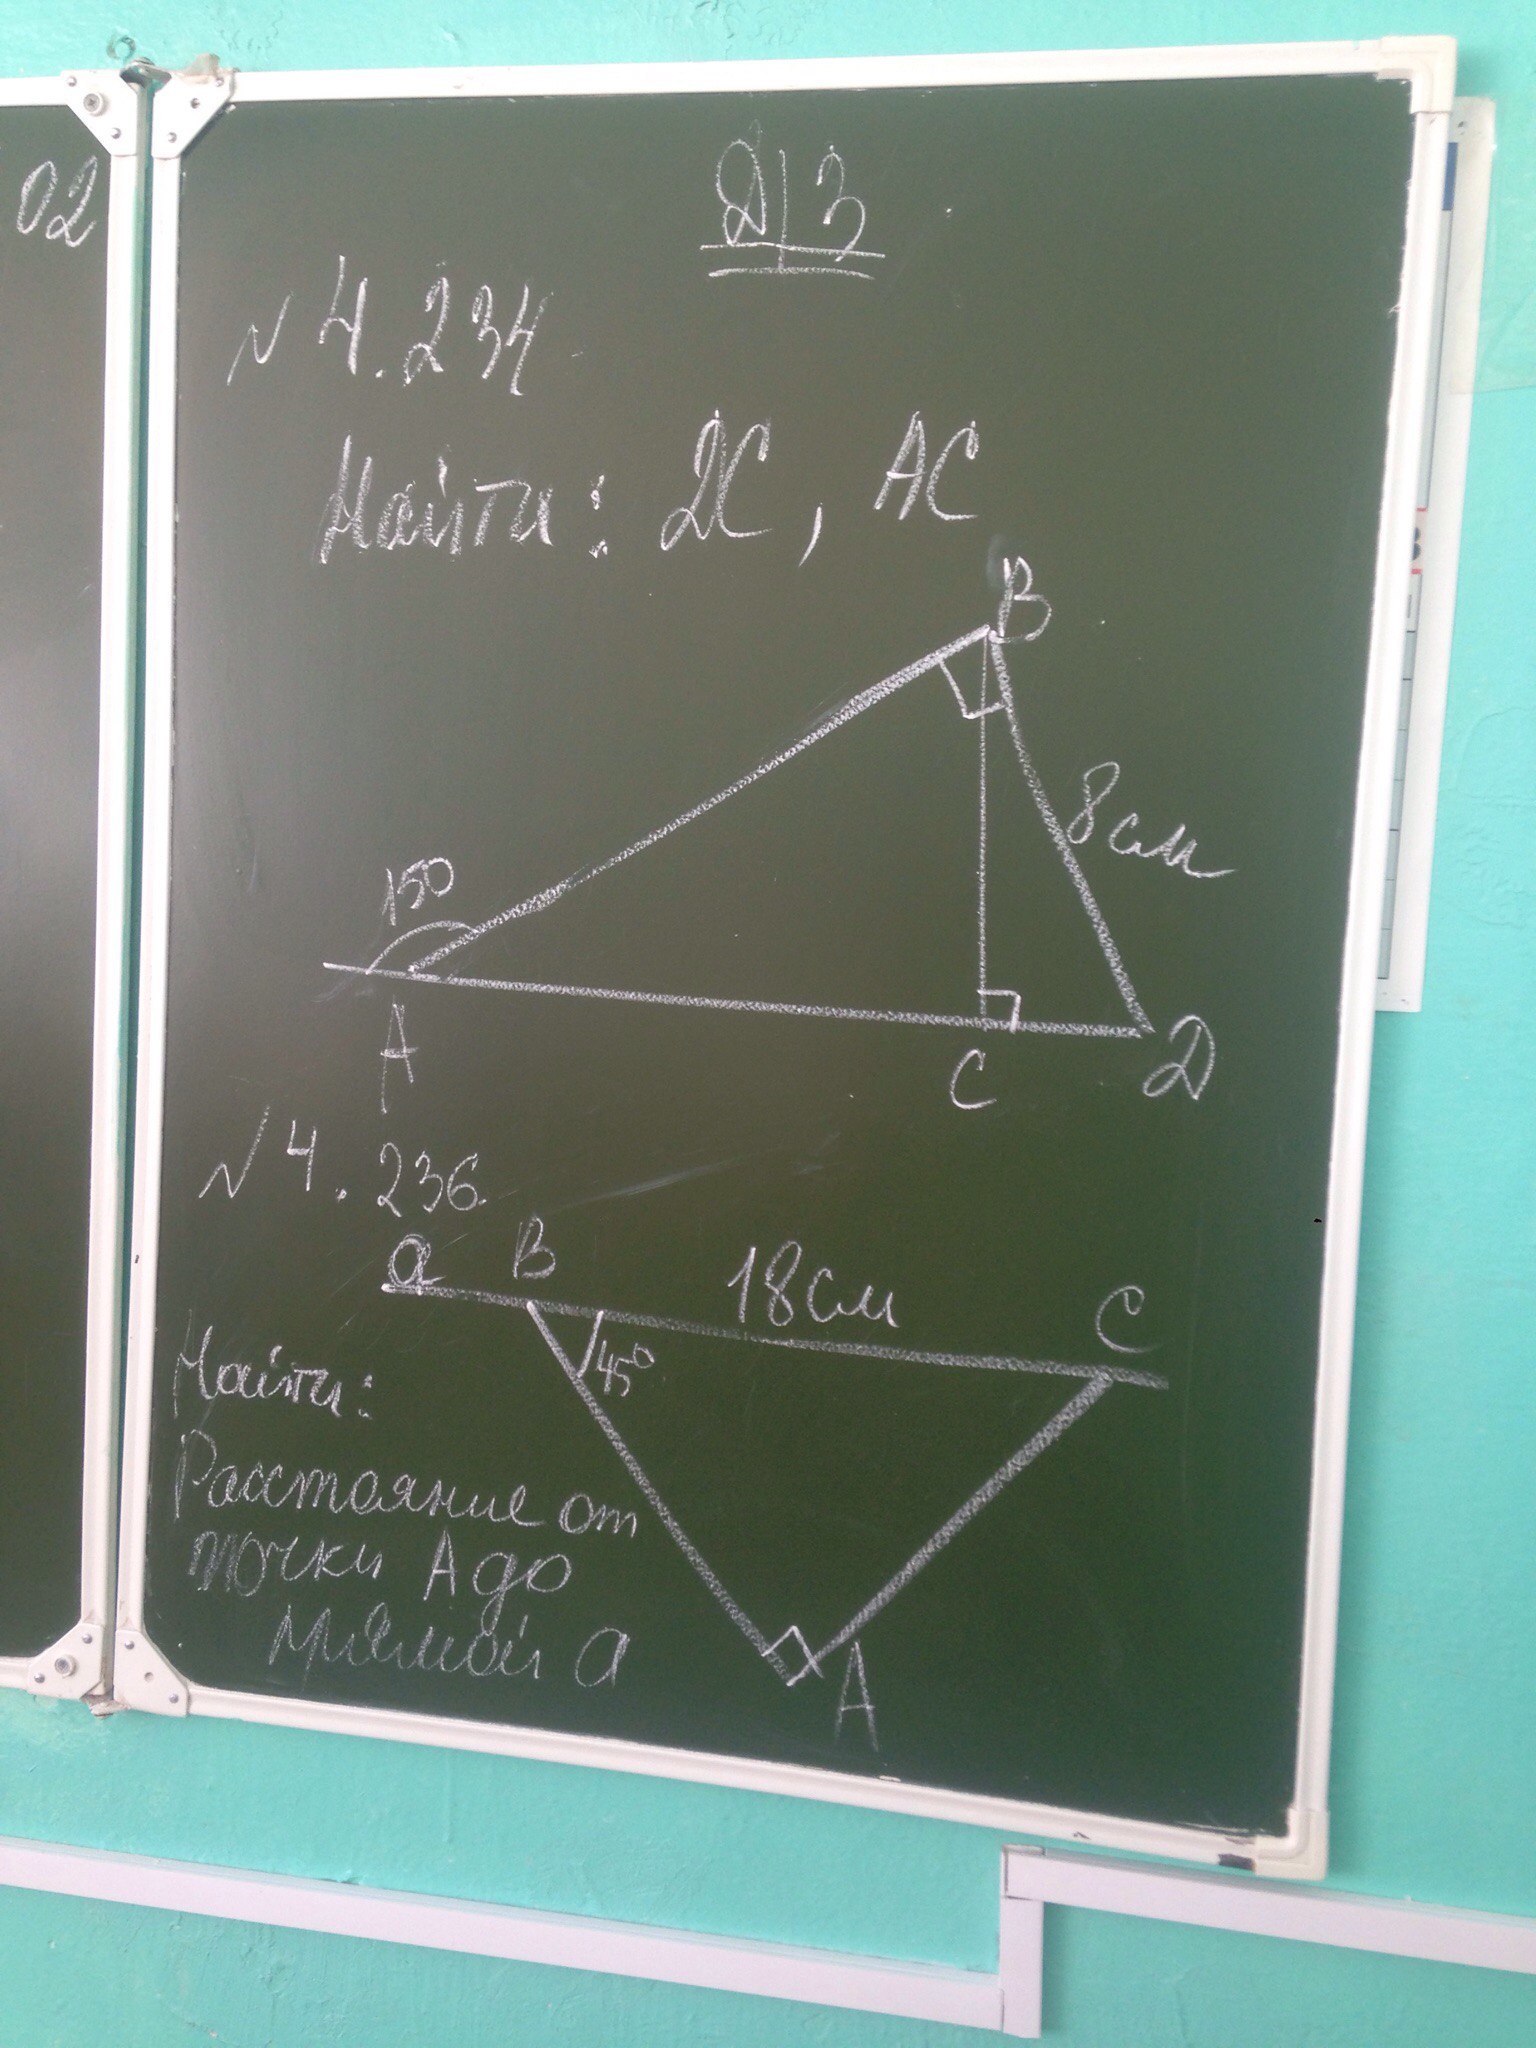 02
Д/З
N 4.234
Найти: DC, AC
B
8см
150
A
C
D
N 4.236.
a
B
18см
C
45°
Найти:
Расстояние от
точки А до
прямой a
A